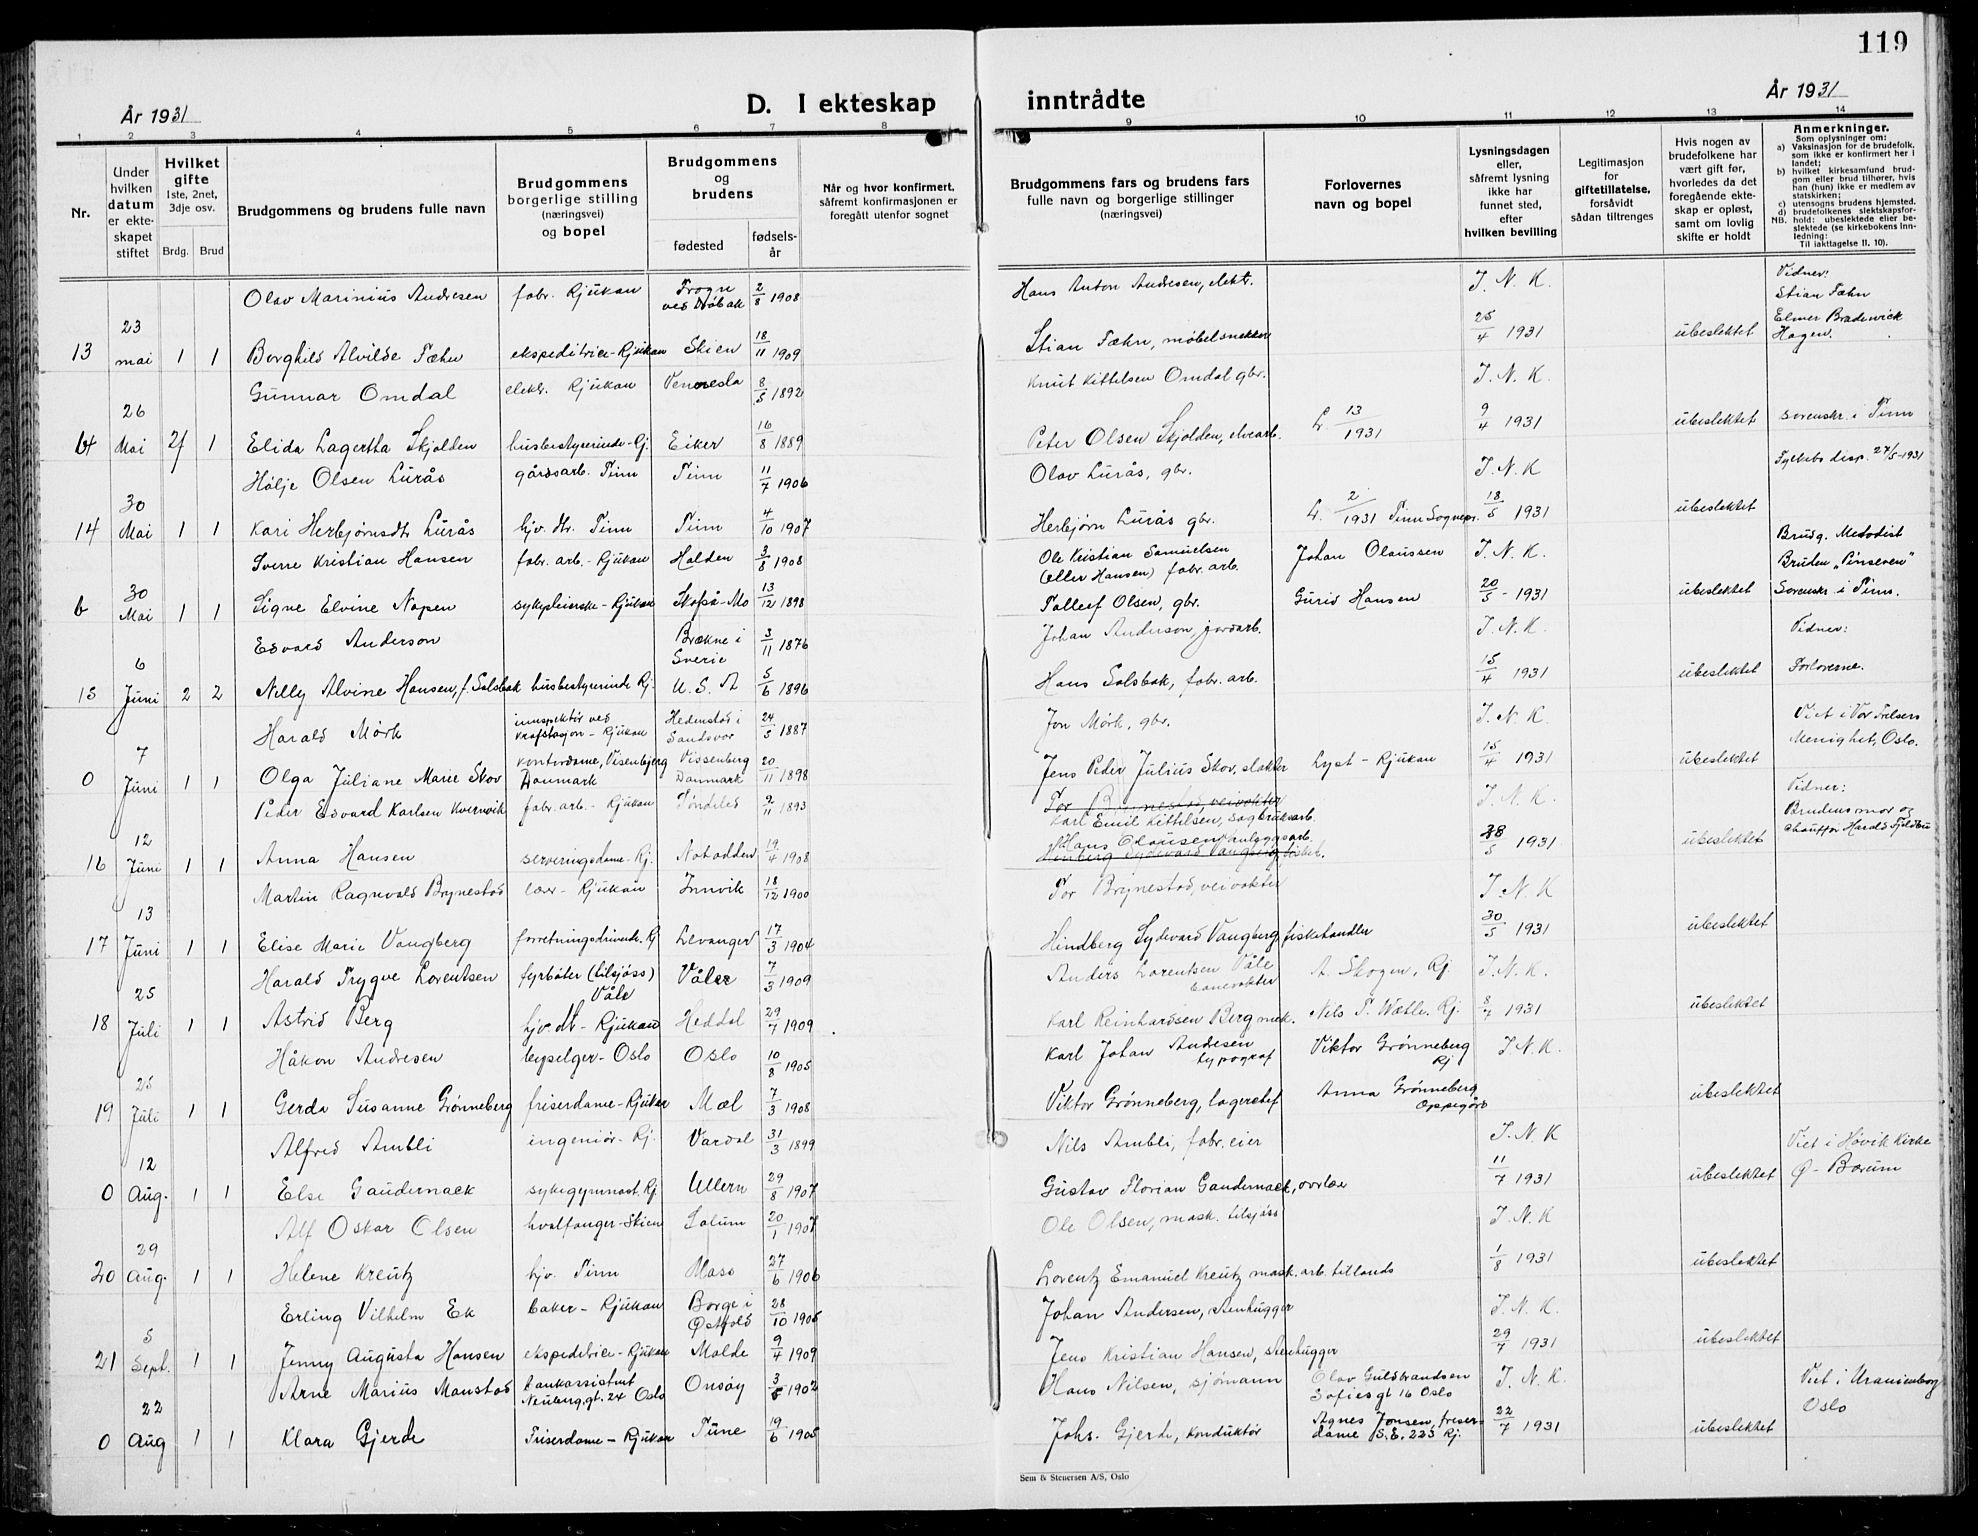 119
År 1931
D. I ekteskap inntrådte
År 1931
1 2 3 4 5 6 7 8 9 10 11 12 13 14
Nr.
Under hvilken datum er ekteskapet stiftet
Hvilket gifte
1ste, 2net, 3dje osv.
Brdg. Brud
Brudgommens og brudens fulle navn
Brudgommens borgerlige stilling (næringsvei) og bopel
Brudgommens og brudens
fødested fødselsår
Når og hvor konfirmert, såfremt konfirmasjonen er foregått utenfor sognet
Brudgommens fars og brudens fars fulle navn og borgerlige stillinger (næringsvei)
Forlovernes navn og bopel
Lysningsdagen eller, såfremt lysning ikke har funnet sted, efter hvilken bevilling
Legitimasjon for giftetillatelse, forsåvidt sådan tiltrenges
Hvis nogen av brudefolkene har vært gift før, hvorledes da det foregående ekteskap er opløst, samt om lovlig skifte er holdt
Anmerkninger.
Som oplysninger om:
a) Vaksinasjon for de brudefolk, som ikke er konfirmert her i landet;
b) hvilket kirkesamfund brudgom eller brud tilhører, hvis han (hun) ikke er medlem av statskirken;
c) utensogns brudens hjemsted.
d) brudefolkenes slektskapsforhold: ubeslektede eller beslektede (se kirkebokens Innledning:
NB.
Til iakttagelse II. 10).
Olav Marinius Andresen fabr. Rjukan Frogn ved Drøbak 2/8 1908 Hans Anton Andresen, elektr. I. N. K. Vidner: Stian Fæhn
13 23 mai 1 1 Borghild Alvilde Fæhn ekspeditrice - Rjukan Skien 18/11 1909 Stian Fæhn, møbelsnekker 25/4 1931 ubeslektet Elmer Bradewick Hagen.
Gunnar Omdal elektr. Rjukan Vennesla 8/5 1892 Knut Kittelsen Omdal gbr. I. N. K.
26 Mai 1 Elida Lagertha Skjolden husbestyrerinde - Rj. Eiker 16/8 1889 Peter Olsen Skjolden, elvearb. L. 13/1931 9/4 1931 ubeslektet Sorenskr. i Tinn
Hølje Olsen Lurås gårdsarb. Tinn Tinn 11/7 1906 Olav Lurås, gbr. I. N. K Fylkets disp. 27/5-1931
14 30 Mai 1 1 Kari Herbjørnsdtr Lurås hjv. dtr. Tinn Tinn 4/10 1907 Herbjørn Lurås gbr. L. 2/1931 Tinn Sognepr. 18/5 1931 ubeslektet
Sverre Kristian Hansen fabr. arb. - Rjukan Halden 3/8 1908 Ole Kristian Samuelsen (eller Hansen) fabr. arb. Johan Olaussen I. N. K. Brudg. Metodist
b 30 Mai 1 1 Signe Elvine Napen sykepleierske - Rjukan Skotså-Mo 13/12 1898 Tallef Olsen, gbr. Gurid Hansen 20/5 - 1931 ubeslektet Bruden "Pinseven" Sorenskr. i Tinn.
Edvard Anderson Brækne i Sverie 3/11 1876 Johan Anderson, jordarb. I. N. K. Vidner:
15 6 Juni 2 2 Nelly Alvine Hansen, f. Solsbak husbestyrerinde Rj. U. S. A 5/6 1896 Hans Solsbak, fabr. arb. 15/4 1931 ubeslektet Forloverne.
Harald Mørk innspektør ved kraftstasjon - Rjukan Hedenstad i Sandsvær 24/5 1887 Jon Mørk, gbr. I. N. K. Viet i Vor Frelsers Menighet, Oslo.
0 7 Juni 1 1 Olga Juliane Marie Skov kontordame, Vissenbjerg Danmark Vissenberg Danmark 20/11 1898 Jens Peder Julius Skov, slakter Lyst - Rjukan 15/4 1931 ubeslektet
Peder Edvard Karlsen Kvernvik fabr. arb. - Rjukan Søndeled 2/11 1893 Tor Brynestad, veivokter Karl Emil Kittelsen, sagbruksarb. I. N. K. Vidner: Brudens mor og
16 12 Juni 1 1 Anna Hansen serveringsdame - Rj. Notodden 19/4 1908 Hans Olausen anleggsarb. 28/5 1931 ubeslektet chauffør Harald Fjeldbu
Martin Ragnvald Brynestad lærer - Rjukan Innvik 18/12 1900 Tor Brynestad, veivokter I. N. K
17 13 Juni 1 1 Elise Marie Vangberg forretningsdrivende. Rj Levanger 17/3 1904 Hindberg Sydevard Vangberg, fiskehandler 30/5 1931 ubeslektet
Harald Trygve Lorentsen fyrbøter (tilsjøss) Våle Våler 7/3 1909 Anders Lorentsen Våle banevokter A. Skogen, Rj. I. N. K.
18 25 Juli 1 1 Astrid Berg hjv. dtr - Rjukan Heddal 29/7 1909 Karl Reinhardsen Berg mek. Nils P. Wætle. Rj. 8/7 1931 ubeslektet
Håkon Andresen bryselger - Oslo Oslo 10/8 1905 Karl Johan Andresen typograf Viktor Grønneberg Rj I. N. K.
19 25 Juli 1 1 Gerda Susanne Grønneberg friserdame - Rjukan Mæl 7/3 1908 Viktor Grønneberg, lagerchef Anna Grønneberg Oppegård ubeslektet
Alfred Ambli ingeniør - Rj. Vardal 31/3 1899 Nils Ambli, fabr. eier I. N. K Viet i Høvik Kirke
0 12 Aug. 1 1 Else Gaudernack sykegymnast. Rj. Ullern 29/8 1907 Gustav Florian Gaudernack, overlær 11/7 1931 ubeslektet Ø - Bærum
Alf Oskar Olsen hvalfanger - Skien Solum 20/1 1907 Ole Olsen, mask. tilsjøss I. N. K
20 29 Aug. 1 1 Helene Kreutz hjv. Tinn Moss 27/6 1906 Lorentz Emanuel Kreutz mask. arb. tillands 1/8 1931 ubeslektet
Erling Vilhelm Ek baker - Rjukan Borge i Østfold 28/10 1905 Johan Andersen, stenhugger I. N. K.
21 5 Sept. 1 1 Jenny Augusta Hansen ekspeditrice - Rjukan Molde 9/4 1909 Jens Kristian Hansen, stenhugger 29/7 1931 ubeslektet
Arne Marius Manstad bankassistent Neuberg. gt. 24 Oslo Onsøy 3/5 1902 Hans Nilsen, sjømann Olav Guldbrandsen Sofiesgt 16 Oslo I. N. K. Viet i Uranienborg Oslo
0 22 Aug 1 1 Klara Gjerde Friserdame - Rjukan Tune 19/6 1905 Johs. Gjerde, konduktør Agnes Jonsen, friserdame S.E. 223 Rj. 22/7 1931 ubeslektet
Sem & Stenersen A/S, Oslo